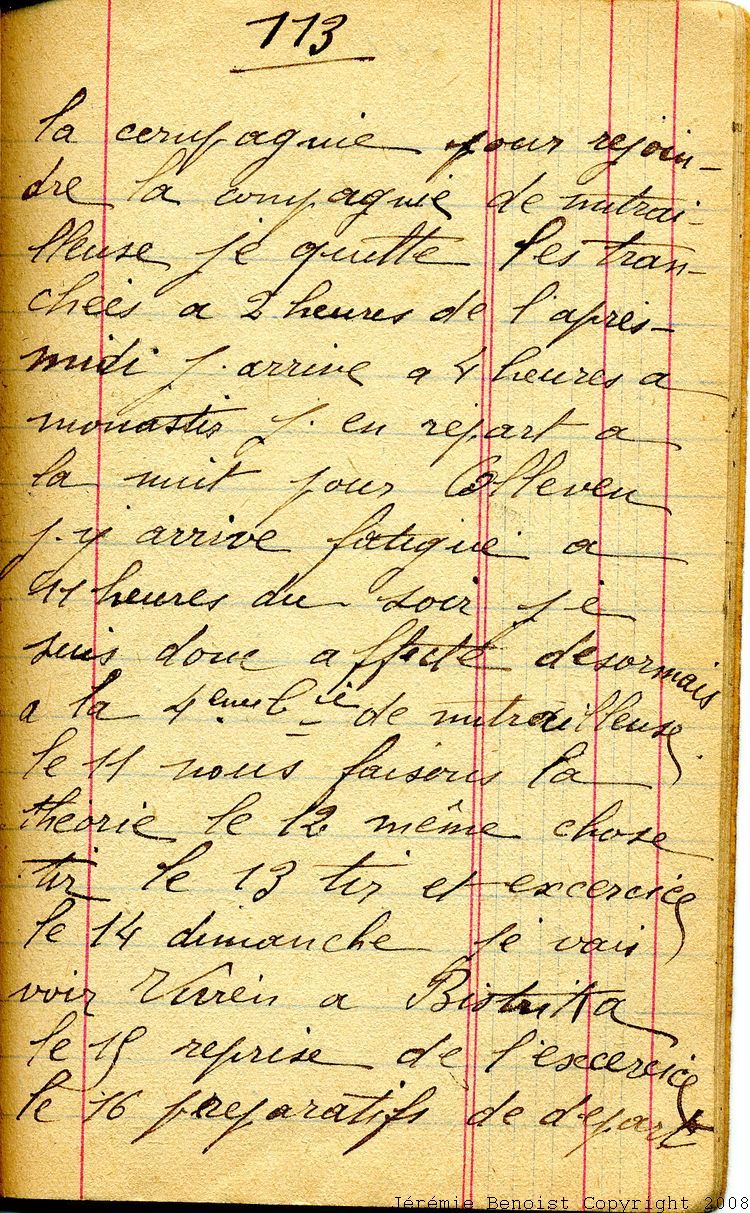 113
la compagnie pour rejoin-
dre la compagnie de mitrai-
lleuse je quitte les tran-
chées a 2 heures de l'après-
midi j. arrive a 4 heures a
monastir j. en repart a
la nuit pour Olleven
j. y arrive fatigué a
11 heures du soir je
suis donc affecté désormais
a la 4eme Cie de mitrailleuse
le 11 nous faisons la
théorie le 12 même chose
tir le 13 tir et excercice
le 14 dimanche je vais
voir a Bistrika
le 15 reprise de l'excercice
le 16 preparatifs de depart
Jérémie Benoist Copyright 2008